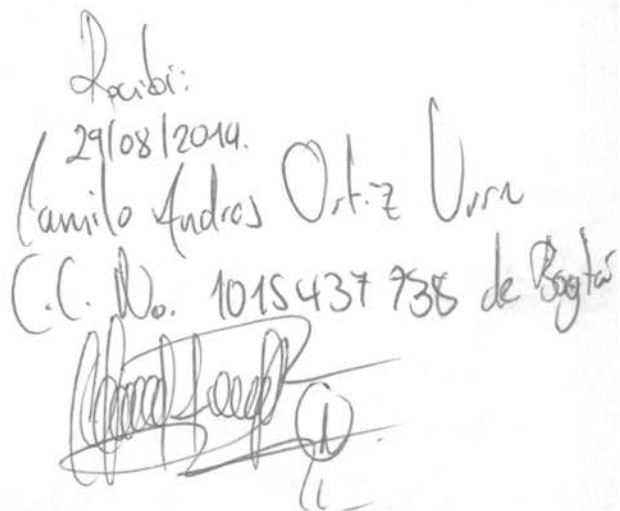 Recibi:
29/08/2014.
Camilo Andres Ortiz
C.C. No. 1015437738 de Bogotá